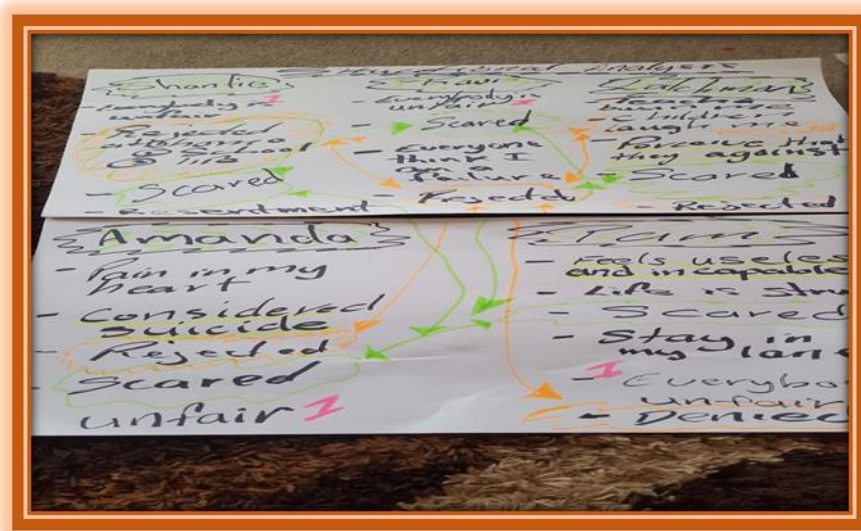 Structural Analysis
Shantie
- Everybody is
unfair 1
- Rejected
at home
@ School
@
- Scared
- Resentment
- Everybody is
unfair 1
- Scared
- Everyone
think I
am a
failure
- Rejected
Latchman's
- Children
laugh me
- Perceive that
they against
- Scared
- Rejected
Amanda
- Pain in my
heart
- Considered
suicide
- Rejected
- Scared
unfair 1
Pam's
- Feels useles
and incapable
- Life is stru
- Scared
- Stay in
my lan
- 1 Everybo
unfair
- Denied